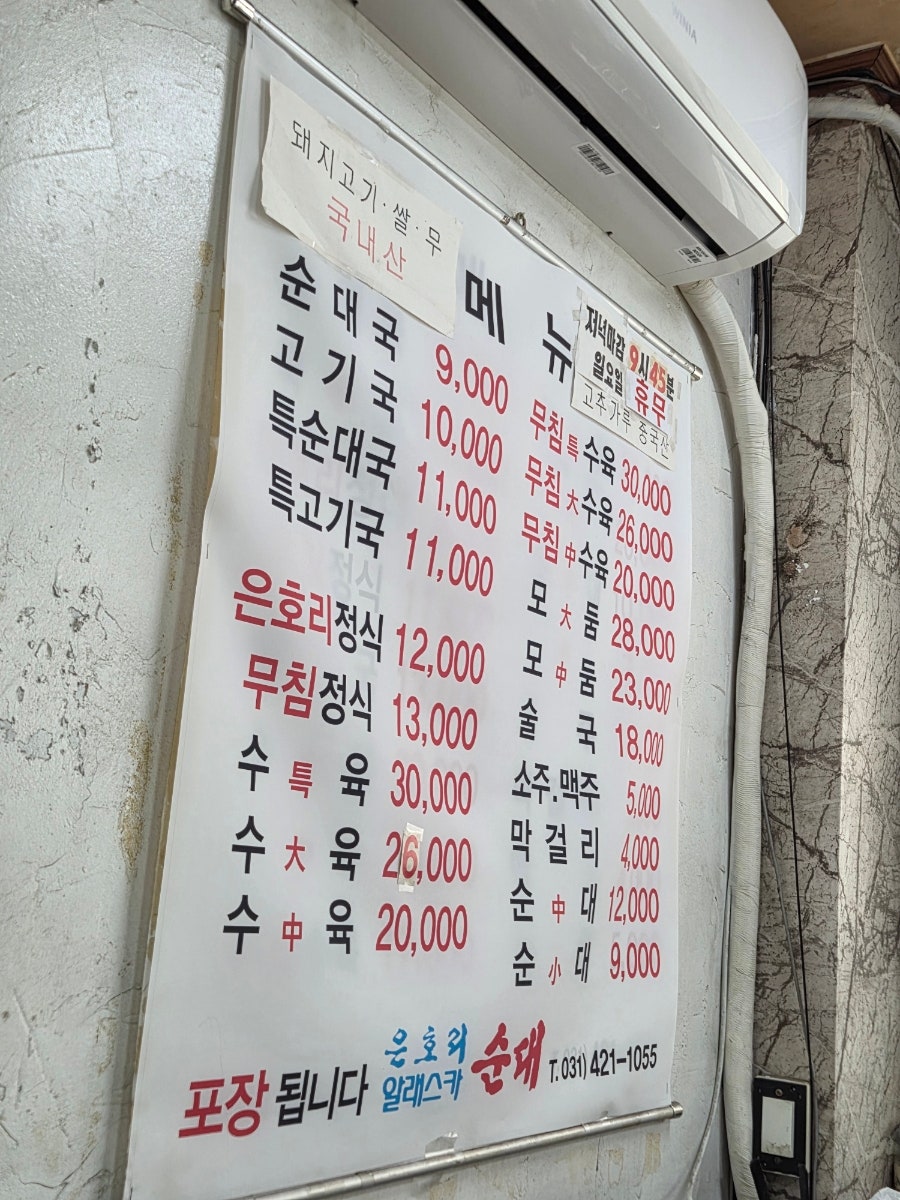 WINIA
돼지고기·쌀·무
국내산
메뉴
저녁마감 9시 45분
일요일 휴무
고추가루 중국산
순대국 9,000
고기국 10,000
특순대국 11,000
특고기국 11,000
은호리정식 12,000
무침정식 13,000
수특육 30,000
수大육 26,000
수中육 20,000
무침특수육 30,000
무침大수육 26,000
무침中수육 20,000
모大둠 28,000
모中둠 23,000
술국 18,000
소주.맥주 5,000
막걸리 4,000
순中대 12,000
순小대 9,000
포장됩니다
은호리
알래스카
순대
T.031) 421-1055